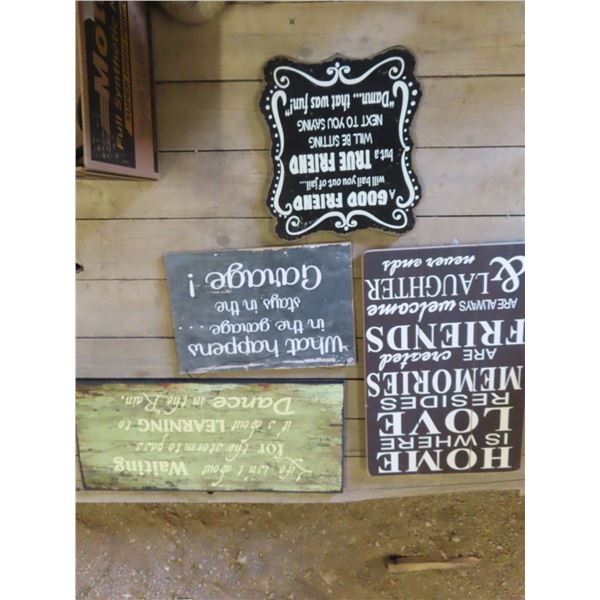 HOME
IS WHERE
LOVE
RESIDES
MEMORIES
ARE created
FRIENDS
ARE ALWAYS welcome
& LAUGHTER
never ends
Life isn't about
Waiting
for the storm to pass
it's about LEARNING to
Dance in the Rain.
What happens
in the garage...
stays in the
Garage!
A GOOD FRIEND
will bail you out of jail...
but a TRUE FRIEND
WILL BE SITTING
NEXT TO YOU SAYING
"Damn...that was fun!"
Full Synthetic